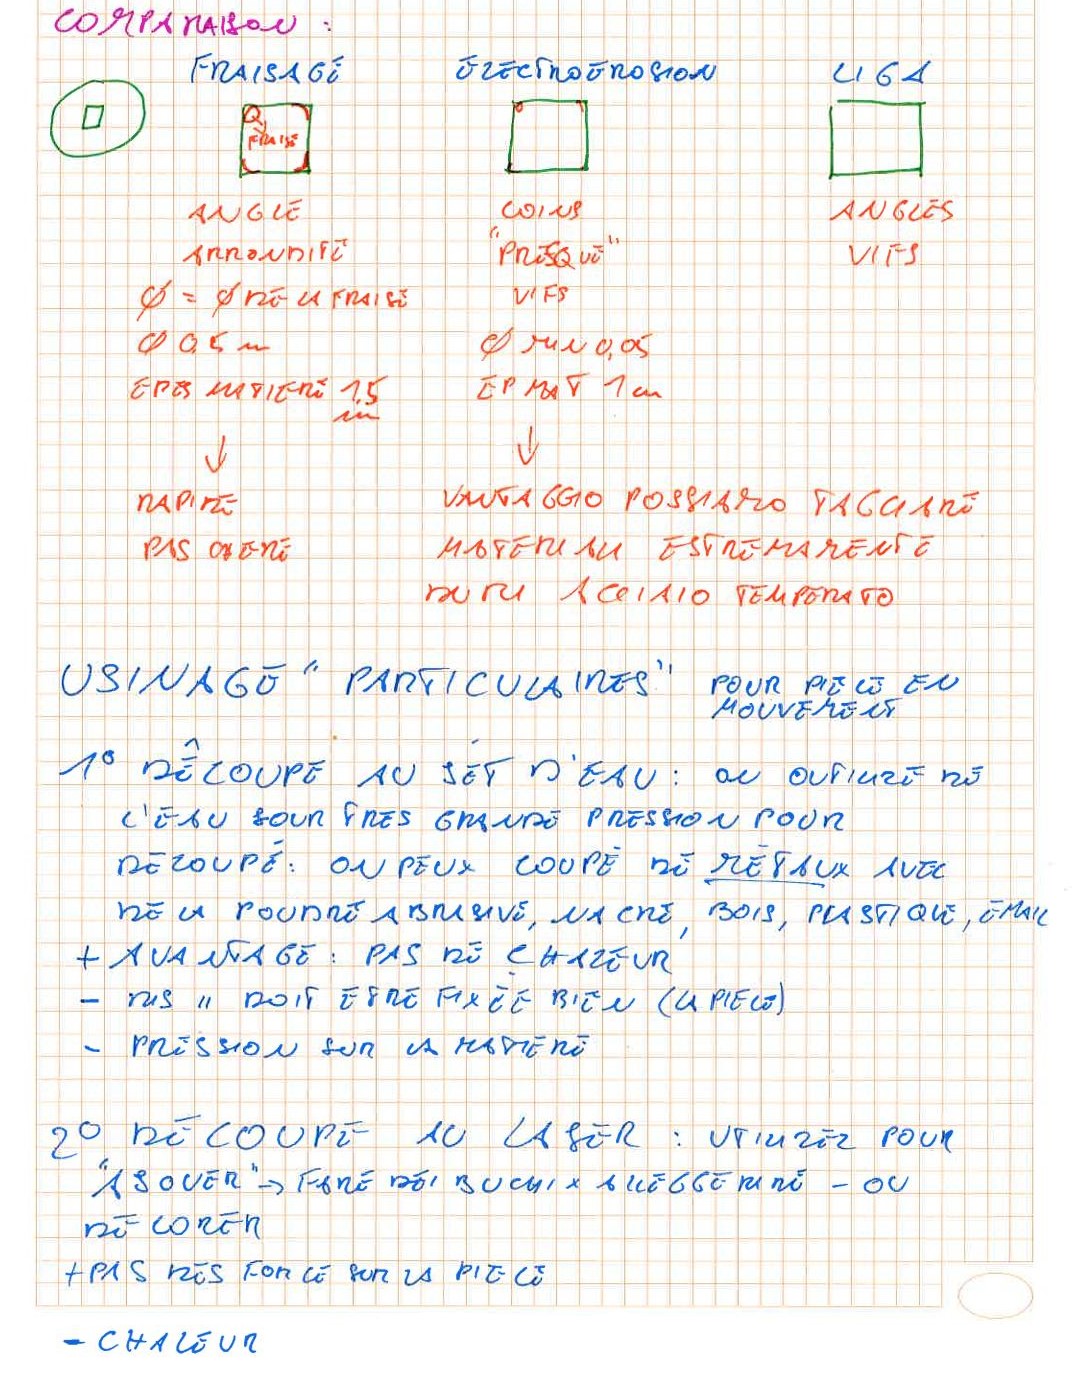 COMPARAISON :
FRAISAGE ÉLECTROÉROSION LIGA
FRAISE
ANGLE COINS ANGLES
ARRONDITE "PRESQUE" VIFS
φ = φ DE LA FRAISE VIFS
φ 0,5 m φ MIN 0,05
EPES MATIERE 1,5 m EP MAT 1 cm
↓ ↓
RAPIDE VANTAGGIO POSSIAMO TAGLIARE
PAS CHERE MATERIALI ESTREMAMENTE
DURI ACCIAIO TEMPERATO
USINAGE "PARTICULAIRES" POUR PIECE EN
MOUVEMENT
1° DÉCOUPE AU JET D'EAU : ON OUTILIZE DE
L'EAU SOUR TRES GRANDE PRESSION POUR
DECOUPÉ: ON PEUX COUPÉ DE MÉTAUX AVEC
DE LA POUDRE ABRASIVE, NACRE, BOIS, PLASTIQUE, EMAIL
+ AVANTAGE : PAS DE CHALEUR
- DIS " DOIT ETRE FIXÉE BIEN (LA PIECE)
- PRESSION SUR LA MATIERE
2° DÉCOUPE AU LASER : UTILIZEZ POUR
"AJOUER" → FARE DEI BUCHI X ALLEGGERIRE - OU
DECORER
+ PAS DES FORCE SUR LA PIECE
- CHALEUR